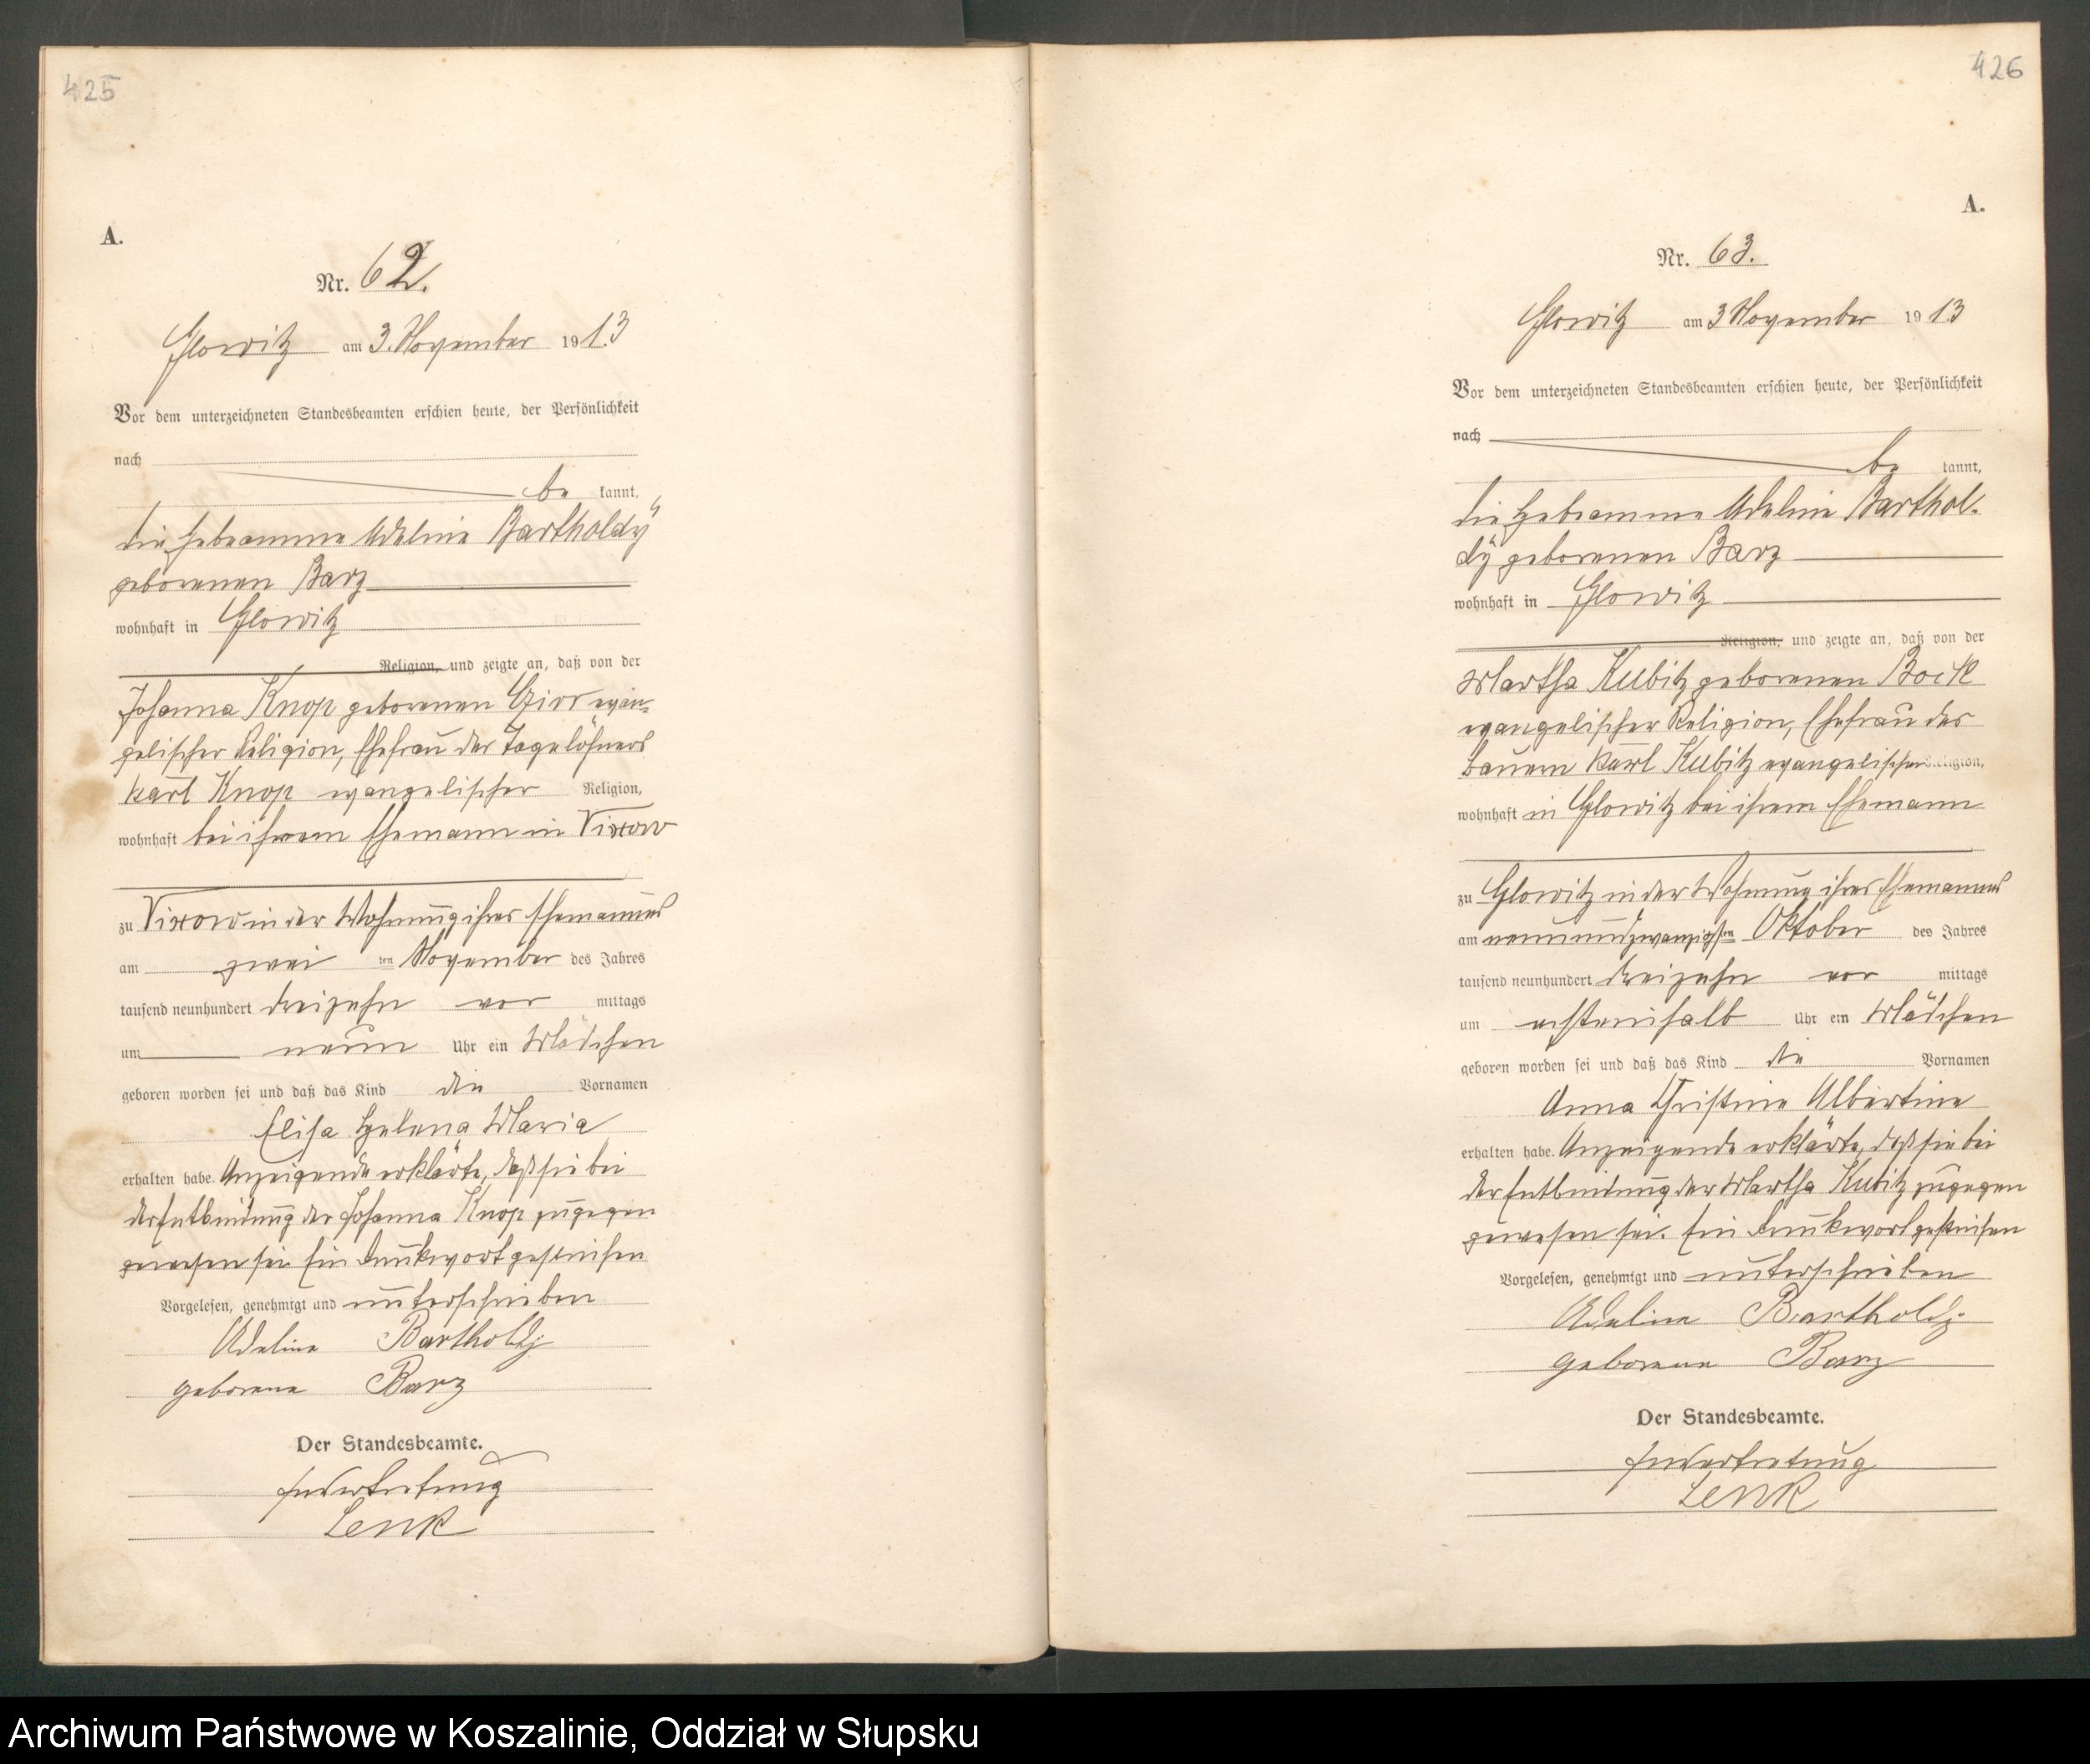 425
A.
Nr. 62.
Glowitz am 3. November 1913
Vor dem unterzeichneten Standesbeamten erschien heute, der Persönlichkeit
nach
be kannt,
die Hebeamme Adeline Bartholdÿ
geborenen Barz
wohnhaft in Glowitz
Religion, und zeigte an, daß von der
Johanna Knop geborenen evan-
gelischer Religion, Ehefrau des Tagelöhners
Karl Knop evangelischer Religion,
wohnhaft bei ihrem Ehemann in Vixow
zu Vixow in der Wohnung ihres Ehemannes
am zwei ten November des Jahres
tausend neunhundert dreizehn vor mittags
um neun Uhr ein Mädchen
geboren worden sei und daß das Kind die Vornamen
Elisa Helena Maria
erhalten habe. Anzeigende erklärte, daß sie bei
der Entbindung der Johanna Knop zugegen
gewesen sei. Ein Druckwort gestrichen
Vorgelesen, genehmigt und unterschrieben
Adeline Bartholdy
geborene Barz
Der Standesbeamte.
In Vertretung
Lenk
426
A.
Nr. 63.
Glowitz am 3 November 1913
Vor dem unterzeichneten Standesbeamten erschien heute, der Persönlichkeit
nach
be kannt,
die Hebeamme Adeline Barthol-
dÿ geborenen Barz
wohnhaft in Glowitz
Religion, und zeigte an, daß von der
Martha Kubitz geborenen Bock
evangelischer Religion, Ehefrau des
Bauern Karl Kubitz evangelischer Religion,
wohnhaft in Glowitz bei ihrem Ehemann
zu Glowitz in der Wohnung ihres Ehemannes
am neunundzwanzigsten Oktober des Jahres
tausend neunhundert dreizehn vor mittags
um achteinhalb Uhr ein Mädchen
geboren worden sei und daß das Kind die Vornamen
Anna Christine Albertine
erhalten habe. Anzeigende erklärte, daß sie bei
der Entbindung der Martha Kubitz zugegen
gewesen sei. Ein Druckwort gestrichen
Vorgelesen, genehmigt und unterschrieben
Adeline Bartholdy
geborene Barz
Der Standesbeamte.
In Vertretung
Lenk
Archiwum Państwowe w Koszalinie, Oddział w Słupsku